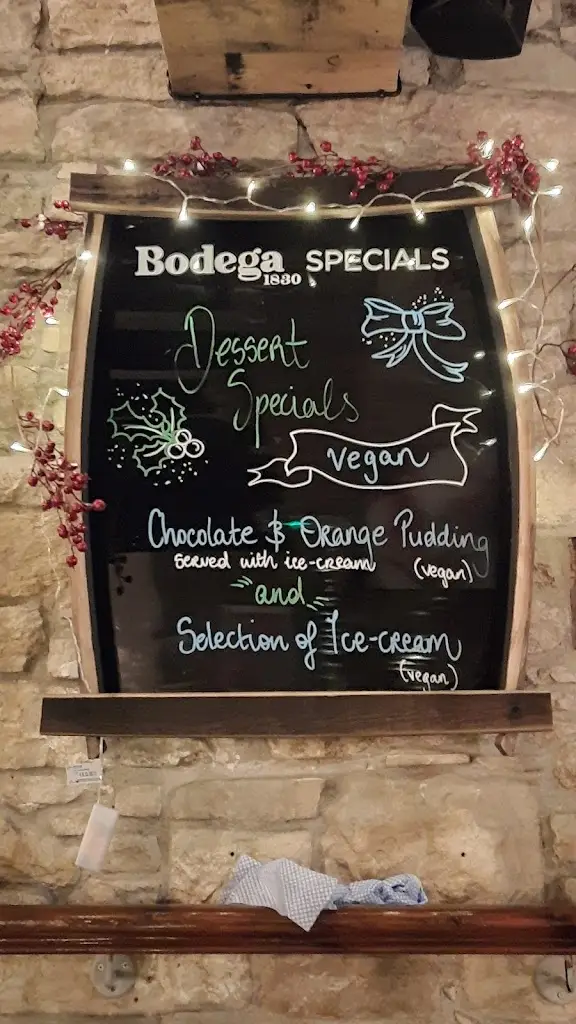 Bodega SPECIALS
1830
Dessert
Specials
vegan
Chocolate & Orange Pudding
Served with ice-cream (vegan)
and
Selection of Ice-cream
(vegan)